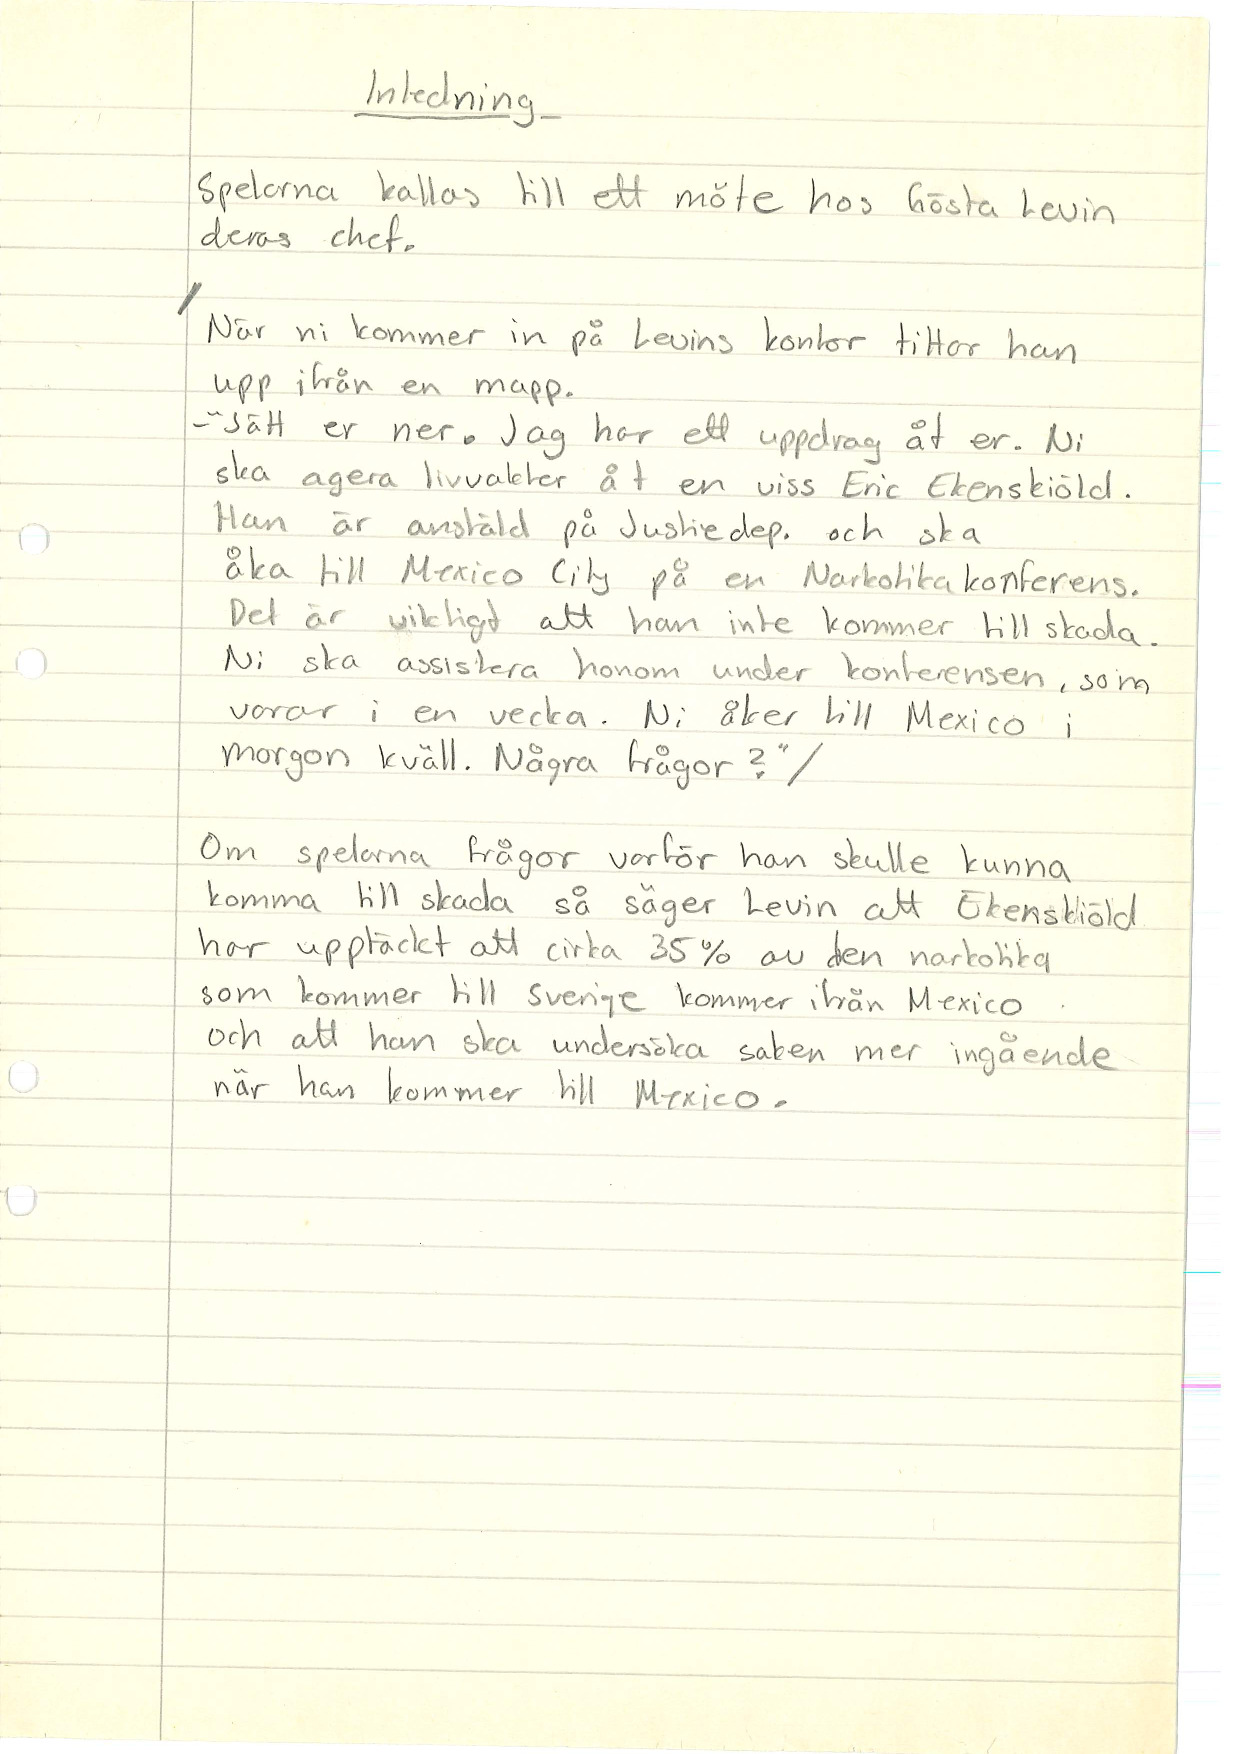 Inledning
Spelarna kallas till ett möte hos Gösta Levin
deras chef.
/
När ni kommer in på Levins kontor tittar han
upp ifrån en mapp.
-"Sätt er ner. Jag har ett uppdrag åt er. Ni
ska agera livvakter åt en viss Eric Ekenskiöld.
Han är anstäld på Justiedep. och ska
åka till Mexico City på en Narkotikakonferens.
Det är viktigt att han inte kommer till skada.
Ni ska assistera honom under konferensen, som
varar i en vecka. Ni åker till Mexico i
morgon kväll. Några frågor?"/
Om spelarna frågor varför han skulle kunna
komma till skada så säger Levin att Ekenskiöld
har upptäckt att cirka 35% av den narkotika
som kommer till Sverige kommer ifrån Mexico
och att han ska undersöka saken mer ingående
när han kommer till Mexico.